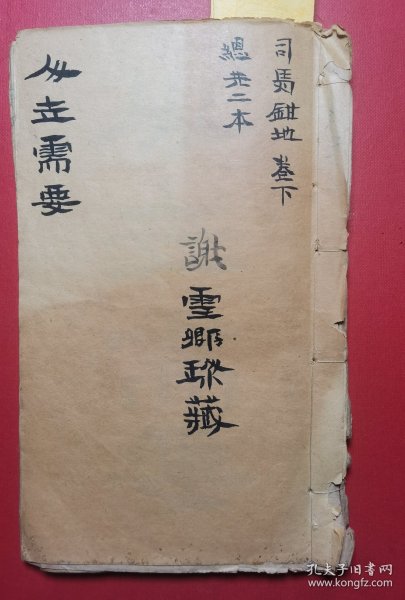 司馬鉗地 卷下
總共二本
謝雲卿珍藏
需要
孔夫子旧书网
www.kongfz.com